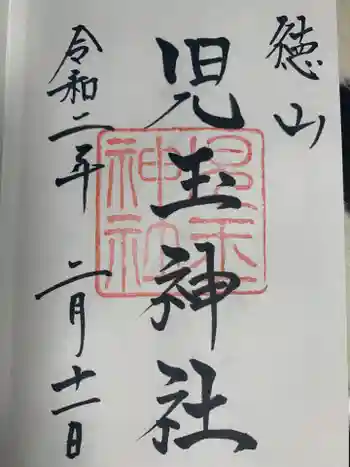 徳山
児玉神社
令和二年 二月十一日
児玉神社